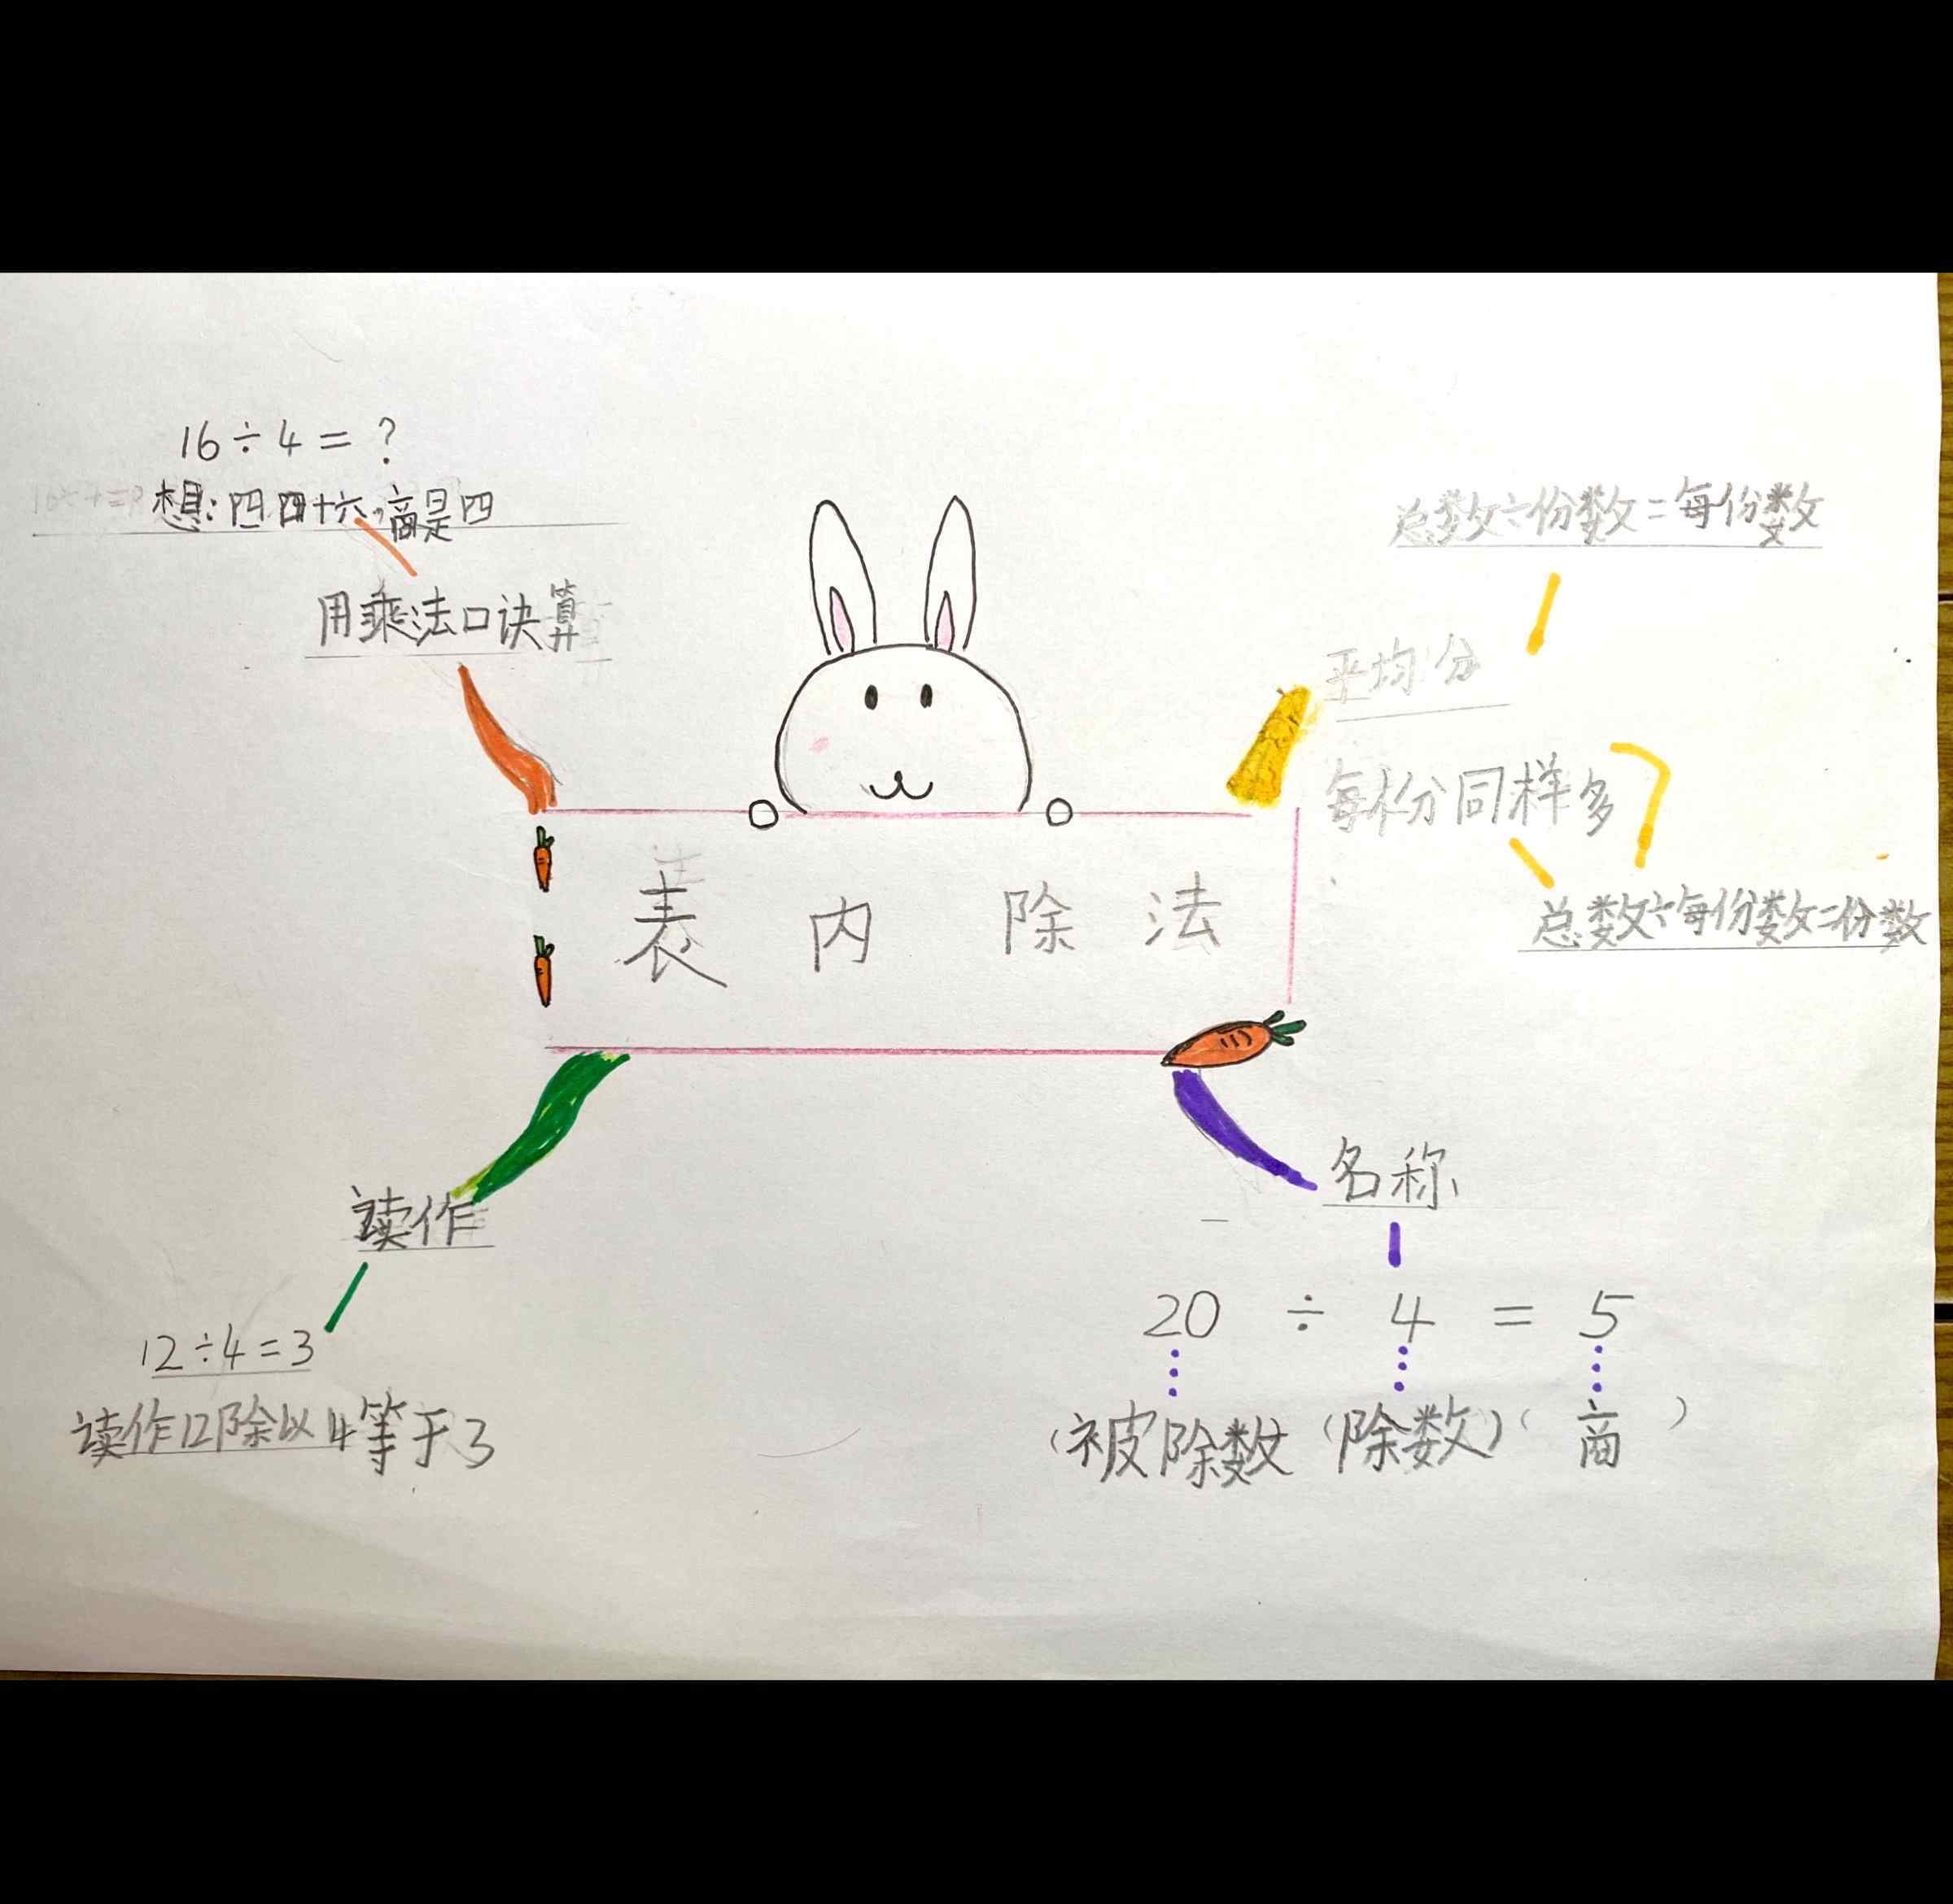 16÷4=?
想:四四十六,商是四
用乘法口诀算
总数÷份数=每份数
平均分
每份同样多
总数÷每份数=份数
表内除法
读作
12÷4=3
读作12除以4等于3
名称
20÷4=5
(被除数(除数)(商)